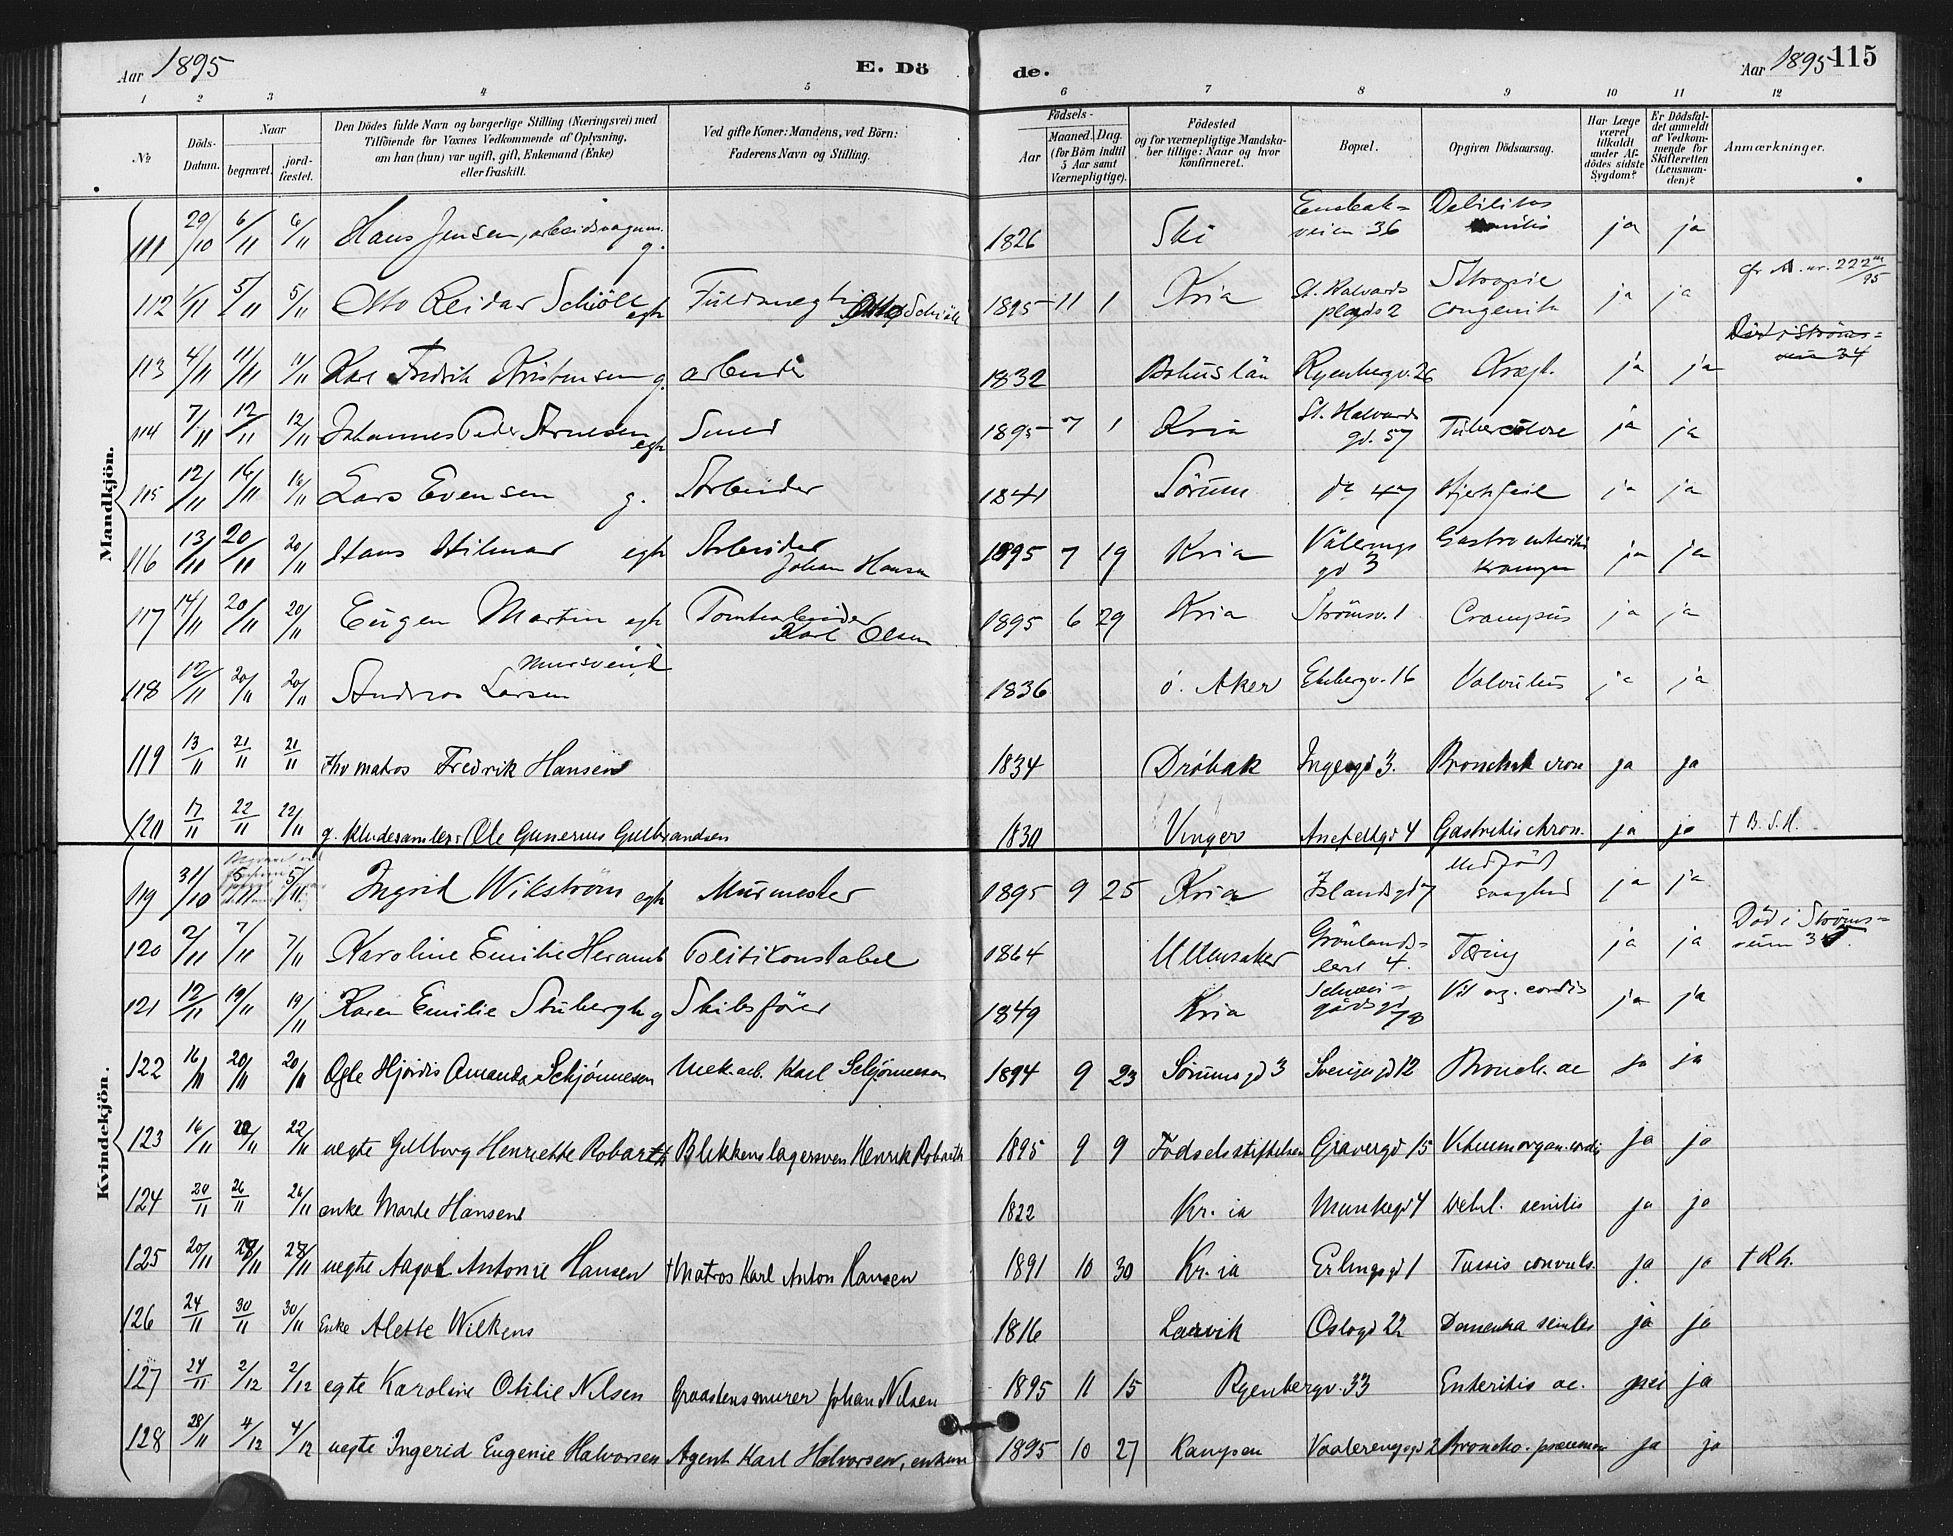 Aar 1895 E. Dö de. Aar 1895 115
1 2 3 4 5 6 7 8 9 10 11 12
№ Döds-Datum. Naar begravet. jord-fæstet. Den Dödes fulde Navn og borgerlige Stilling (Næringsvei) med Tilföiende for Voxnes Vedkommende af Oplysning, om han (hun) var ugift, gift, Enkemand (Enke) eller fraskilt. Ved gifte Koner: Mandens, ved Börn: Faderens Navn og Stilling. Födsels- Aar Maaned. Dag. (for Börn indtil 5 Aar samt Værnepligtige). Födested og for værnepligtige Mandskaber tillige: Naar og hvor konfirmeret. Bopæl. Opgiven Dödsaarsag. Har Læge været tilkaldt under Afdödes sidste Sygdom? Er Dödsfaldet anmeldt af Vedkommende for Skifteretten (Lensmanden)? Anmærkninger.
Mandkjön.
111 29/10 6/11 6/11 Hans Jensen, g. 1826 Ski veien 36 Debilitas senilis ja ja
112 1/11 5/11 5/11 Otto Reidar Schiöll egte Fuldmegtig Schiöll 1895 11 1 Kria St. Halvards plads 2 Atropie congenita ja ja cfr A. nr. 222 /95
113 4/11 11/11 11/11 Karl Fredrik Kristensen g. arbeider 1832 Bohuslän Ryenbergv. 26 Kræft. ja ja Död i Ströms-
114 7/11 12/11 12/11 Johannes Peder Arnesen egte Smed 1895 7 1 Kria St. Halvards gd. 57 Tuberculose ja ja
115 12/11 16/11 16/11 Lars Evensen g. Arbeider 1841 Sörum do 47 Hjertefeil ja ja
116 13/11 20/11 20/11 Hans Hilmar egte Arbeider Johan Hansen 1895 7 19 Kria Vålerengs gd 3 Gastroenteritis kramper ja ja
117 14/11 20/11 20/11 Eugen Martin egte Tomtearbeider Karl Olsen 1895 6 29 Kria Strömsv. 1 Crampus ja ja
118 12/11 20/11 20/11 Andreas Larsen mursvend 1836 ö. Aker Ekebergv. 16 ja ja
119 13/11 21/11 21/11 matros Fredrik Hansen 1834 Dröbak Ingegd 3. Bronchit cron ja ja
120 17/11 22/11 22/11 g. kludesamler: Ole Gunerius Gulbrandsen 1830 Vinger gd 4 Gastritis chron. ja ja † B.S.H.
Kvindekjön.
119 31/10 5/11 5/11 Ingrid Wikström egte Murmester 1895 9 25 Kria Islandsgd 7 Medfödt svaghed ja ja
120 2/11 7/11 7/11 Karoline Emilie Heramb Politikonstabel 1864 Ullensaker Grönlands-leret 4. Tæring ja ja Död i Ströms-
121 12/11 19/11 19/11 Karen Emilie Stubergh g Skibsförer 1849 Kria Schwei-gårdsgd 78 Vit. org. cordis ja ja
122 16/11 20/11 20/11 Egte Hjördis Amanda Schjönneson Mek. arb. Karl Schjönneson 1894 9 23 Sörumsgd 3 Sverigsgd 12 Bronch. ac ja ja
123 16/11 20/11 22/11 uegte Gulborg Henriette Robarth Blikkenslagersven Henrik Robarth 1895 9 9 Födselsstiftelsen Gravergd 15 Vitium organ. cordis ja ja
124 20/11 26/11 26/11 enke Marte Hansen 1822 Kr.ia Munkegd 4 Debil. senilis ja ja
125 20/11 28/11 28/11 uegte Aagot Antonie Hansen † Matros Karl Anton Hansen 1891 10 30 Kr.ia Erlingsgd 1 Tussis convuls. ja ja † Kh.
126 24/11 30/11 30/11 Enke Alette Wilkens 1816 Laurvik Oslogd 22 Dementia senilis ja ja
127 24/11 2/12 2/12 egte Karoline Otilie Nilsen Graastensmurer Johan Nilsen 1895 11 15 Ryenbergv. 33 Enteritis ac. nei ja
128 28/11 4/12 4/12 uegte Ingerid Eugenie Halvorsen Agent Karl Halvorsen, enkem 1895 10 27 Kampen Vaalerengsgd 2 Broncho-pneumon ja ja